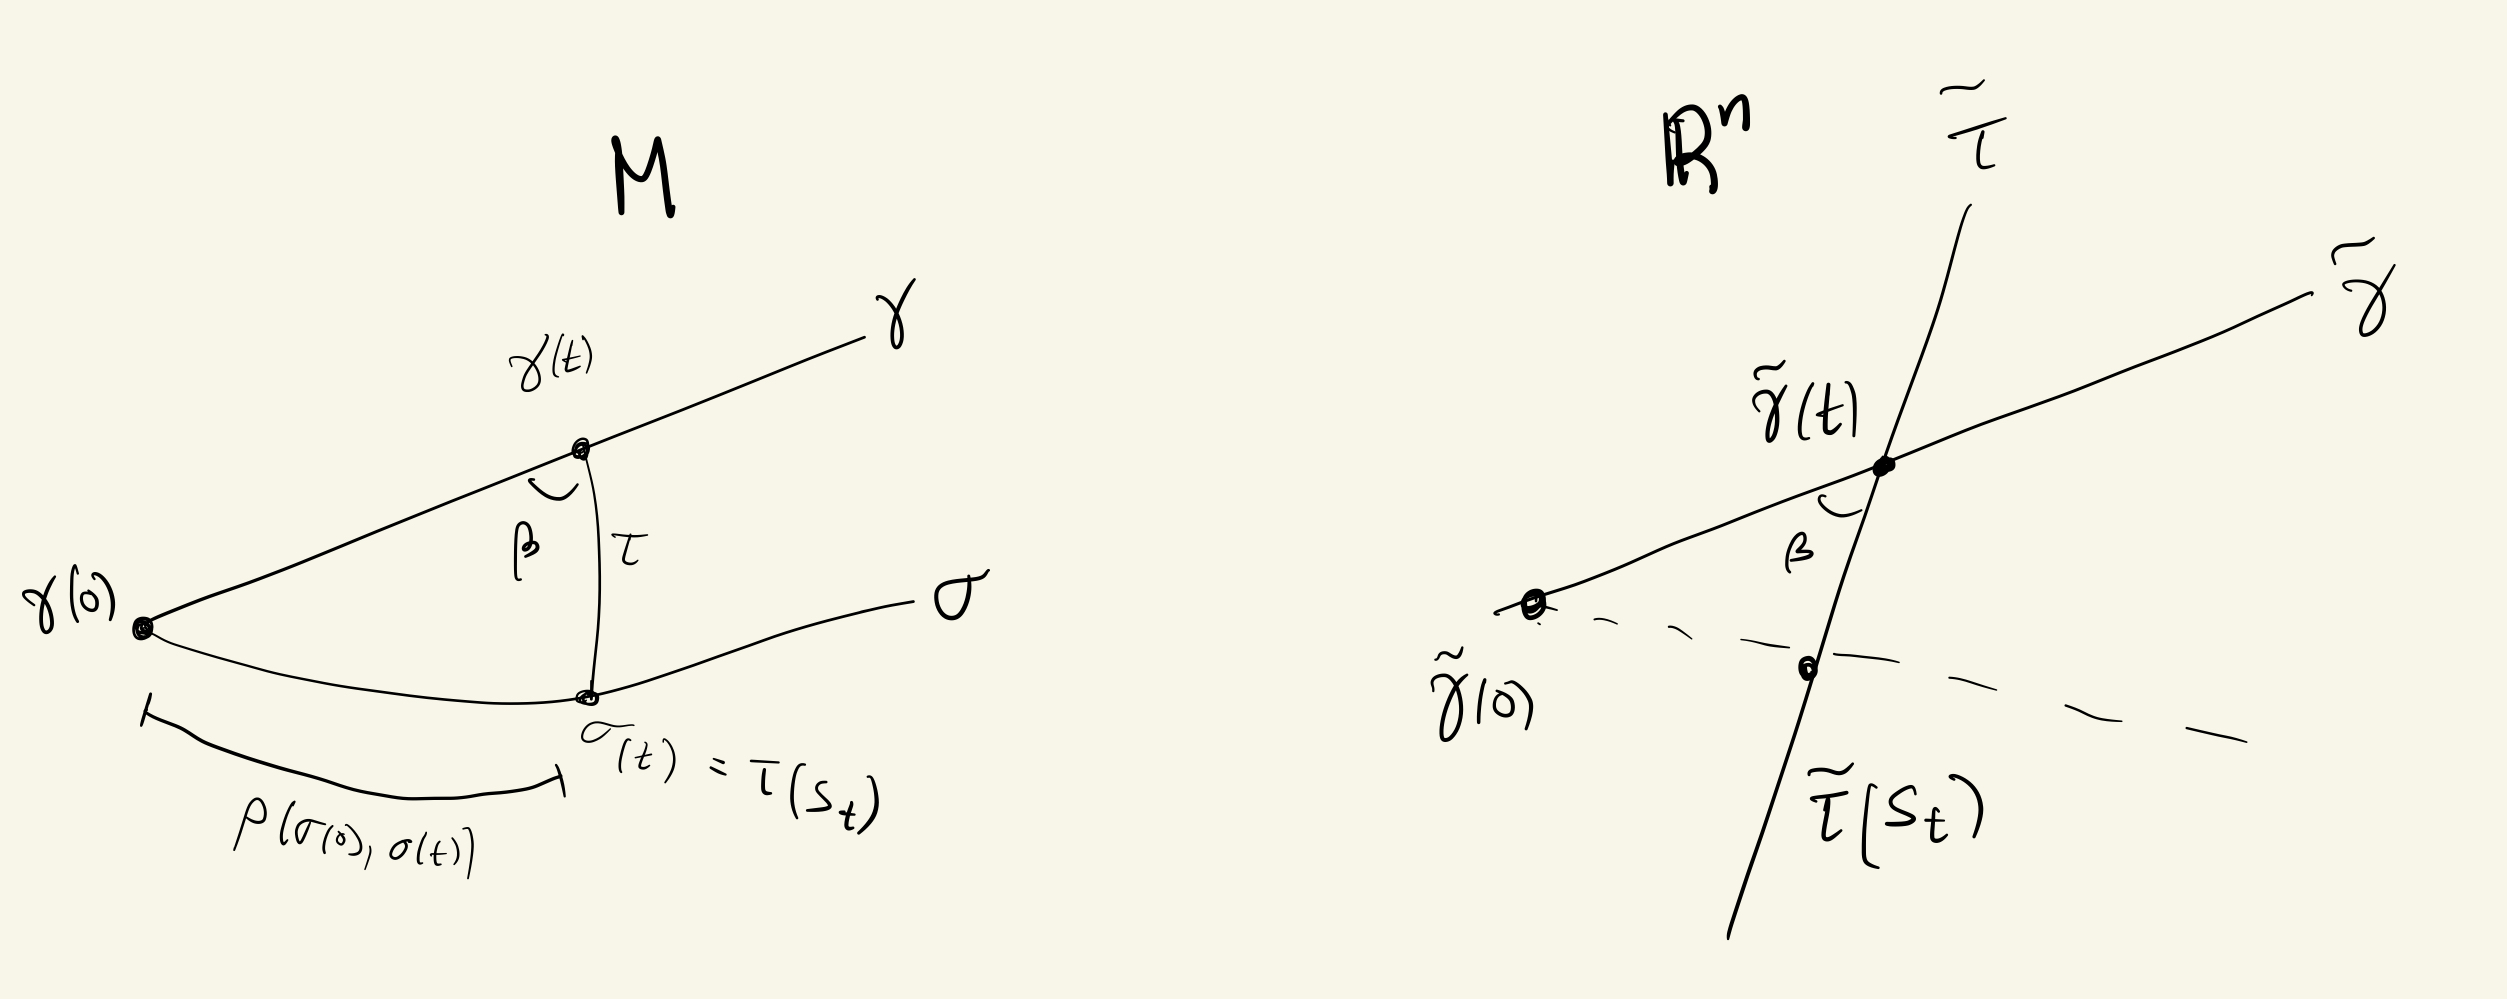 M
γ
γ(t)
β
τ
γ(0)
σ
σ(t) = τ(s_t)
ρ(σ(0), σ(t))
ℝⁿ
τ̃
γ̃
γ̃(t)
β
γ̃(0)
τ̃(s_t)